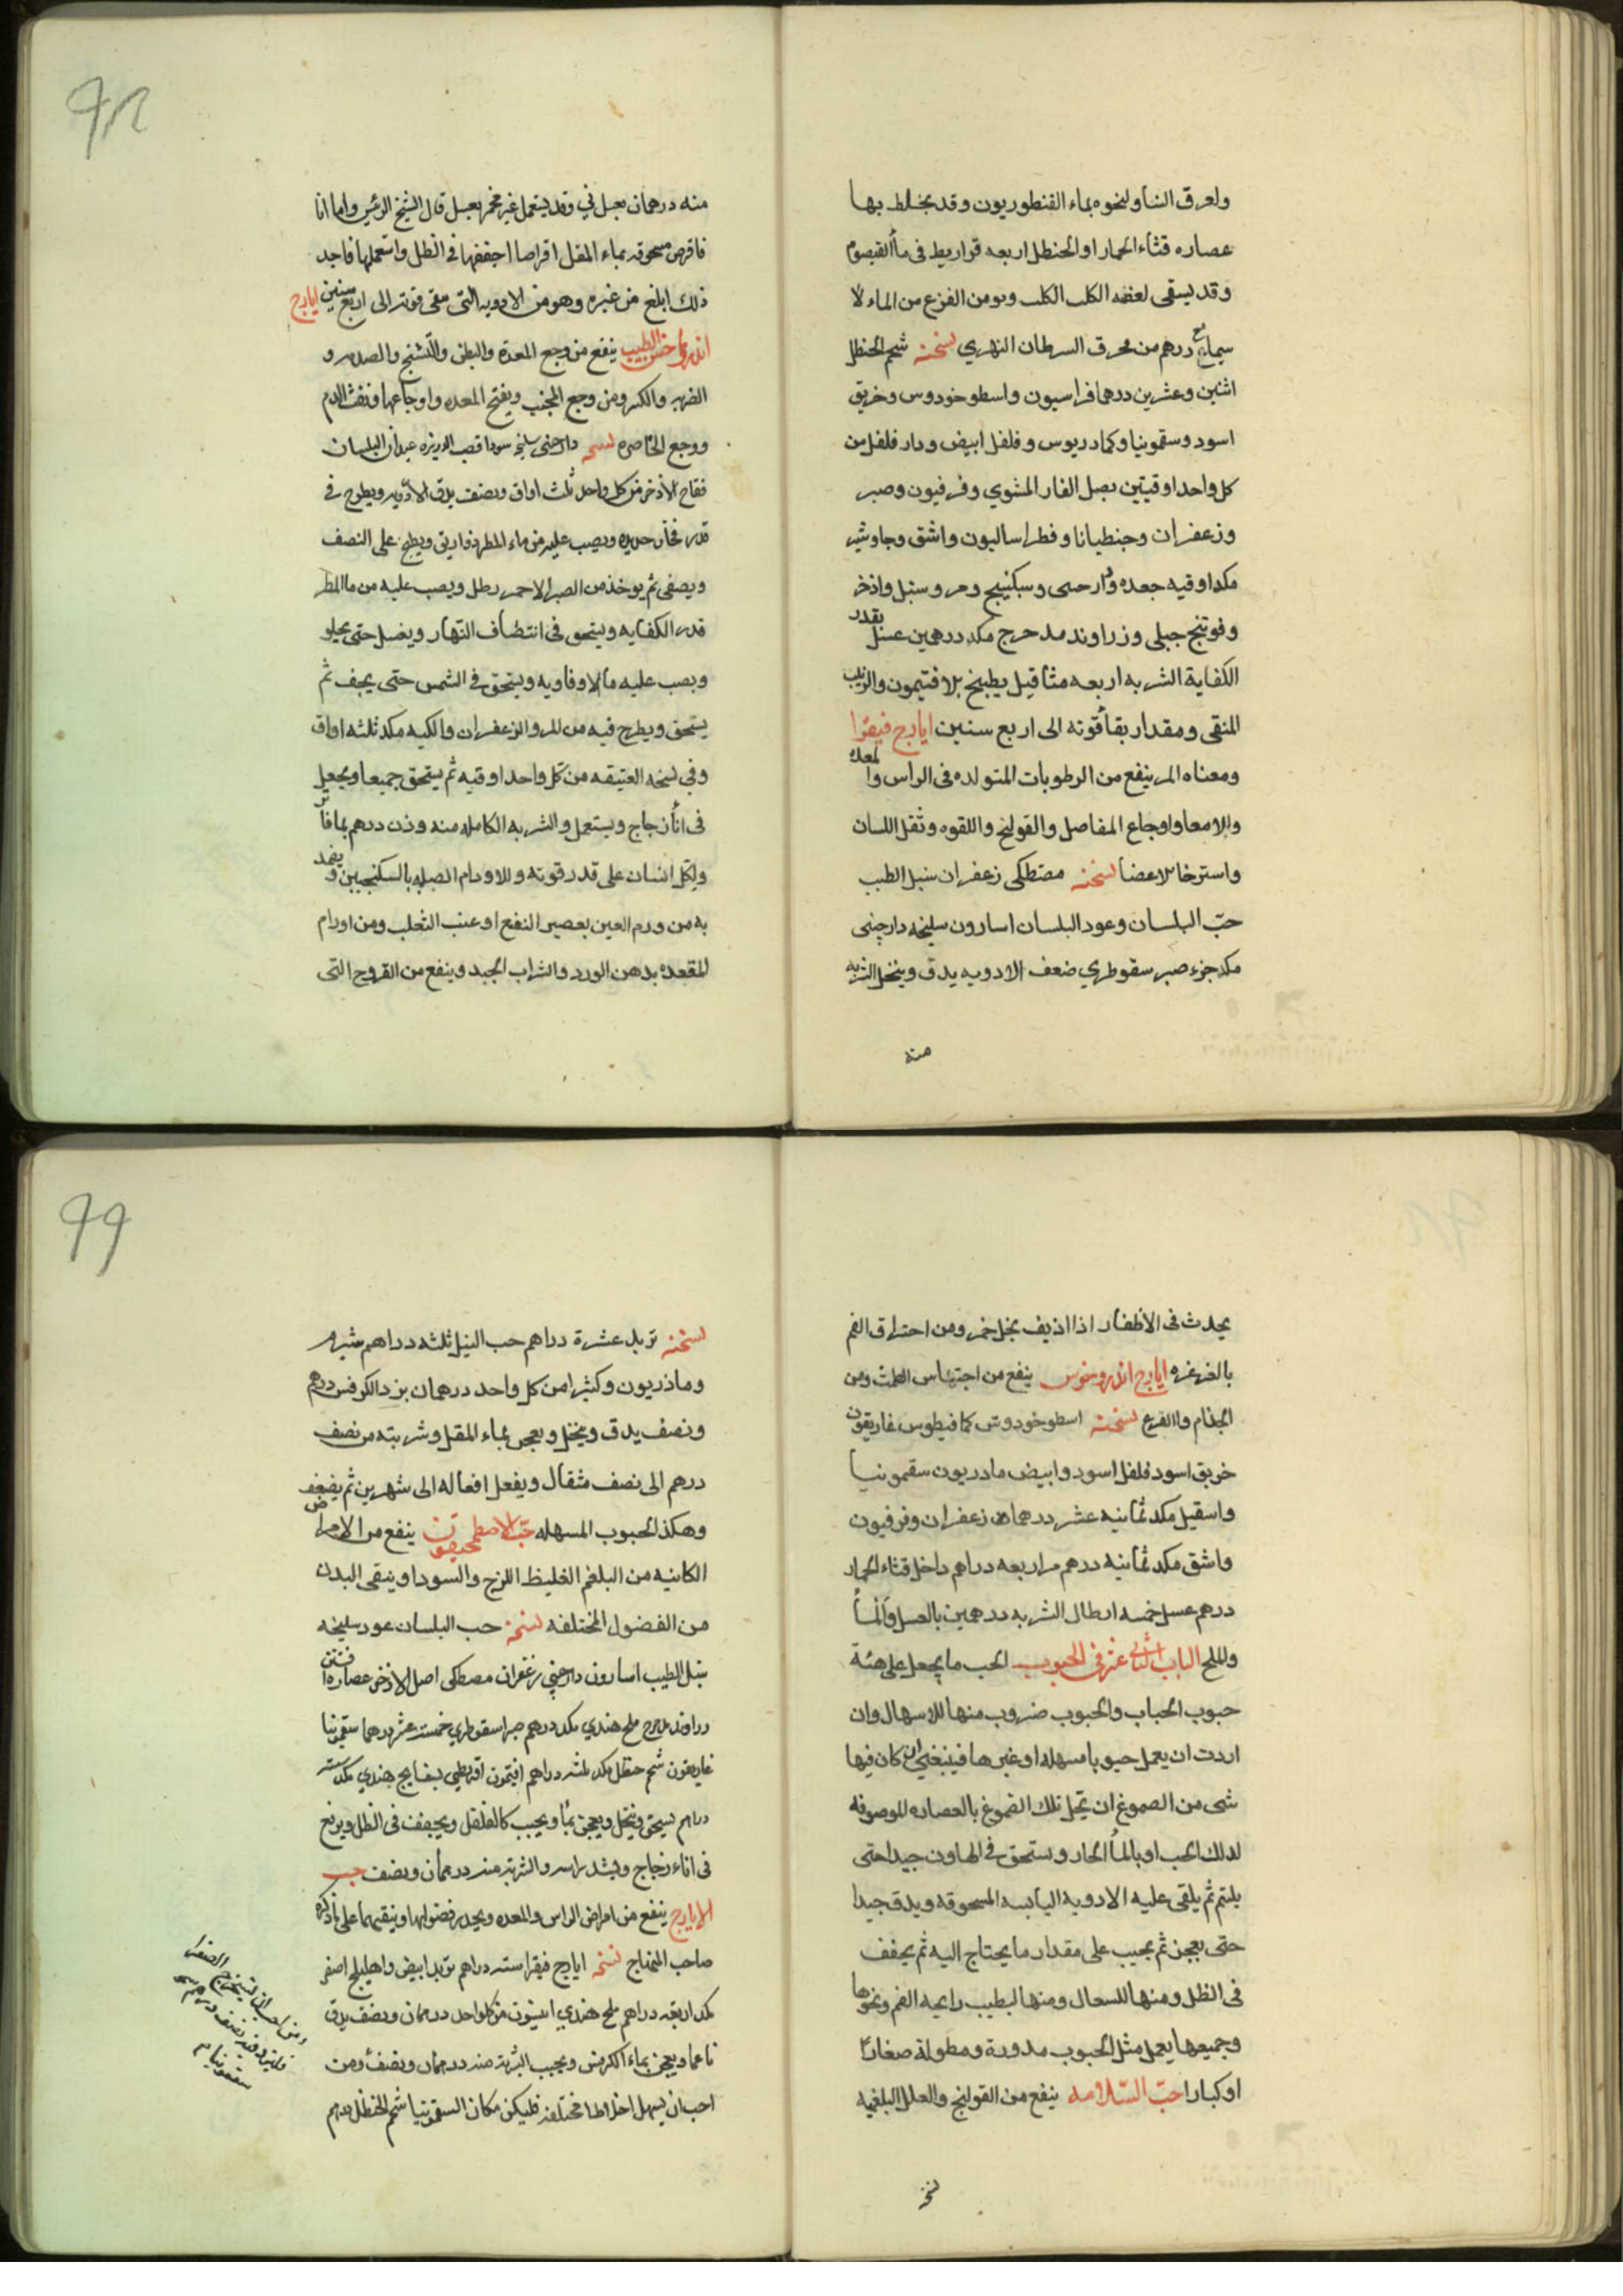 ولعرق النسا ونحوه بماء القنطوريون وقد يخلط بها
عصاره قثاء الحمار او الحنظل اربعه قراريط فى ماء القيصوم
وقد يسقى لعضه الكلب الكلب ومن الفزع من الماء لا
سيما مع درهم من محرق السرطان النهري نسخته شحم الحنظل
اثنين وعشرين درهما فراسيون واسطوخودوس وخربق
اسود وسقمونيا وكمادريوس وفلفل ابيض ودار فلفل من
كل واحد اوقيتين بصل الفار المشوي وفرفيون وصبر
وزعفران وجنطيانا وفطراساليون واشق وجاوشير
مكد اوقيه جعده ودارصى وسكبينج ومر وسنبل واذخر
وفوتنج جبلى وزراوند مدحرج مكد درهمين عسل بقدر
الكفاية الشربه اربعه مثاقيل بطبيخ الافتيمون والزبيب
المنقى ومقدار بقاء قوته الى اربع سنين ايارج فيقرا
ومعناه المر ينفع من الرطوبات المتولده فى الراس والمعده
والامعا واوجاع المفاصل والقولنج واللقوه وثقل اللسان
واسترخا الاعضا نسخته مصطكى زعفران سنبل الطيب
حبّ البلسان وعود البلسان اسارون سليخه دارچينى
مكد جزء صبر سقوطري ضعف الادويه يدق وينخل الشربه
منه
٩٨
منه درهمان بعسل وقد يستعمل غير مخمر بعسل قال الشيخ الرئيس واما انا
فاقرص مسحوقه بماء المقل اقراصا اجففها فى الظل واستعملها فاجد
ذلك ابلغ من غيره وهو من الادويه التى تبقى قوته الى اربع سنين ايارج
الطبيب ينفع من وجع المعدة والبطن والتشنج والصدر و
الضربه والكسر ومن وجع الجنب ويفتح المعده واوجاعها ونفث الدم
ووجع الخاصره نسخه دارچينى سليخه سودا قصب الذريره عيدان البلسان
فقاح الاذخر من كل واحد ثلث اواق ونصف يدق الادويه ويطرح فى
قدر فخار جديده ويصب عليه من ماء المطر دوارق ويطبخ على النصف
ويصفى ثم يوخذ من الصبر الاحمر رطل ويصب عليه من ماالمطر
قدر الكفايه ويسحق فى انتصاف النهار ويغسل حتى يحلو
ويصب عليه ما الافاويه ويسحق فى الشمس حتى يجف ثم
يسحق ويطرح فيه من المر والزعفران والكيه مكد ثلثه اواق
وفي نسخه العتيقه من كل واحد اوقيه ثم يسحق جميعا ويجعل
فى اناء زجاج ويستعمل والشربه الكامله منه وزن درهم بما فاتر
ولكل انسان على قدر قوته وللاورام الصلبه بالسكنجبين ويضمد
به من ورم العين بعصير النفع او عنب الثعلب ومن اورام
المقعده بدهن الورد والشراب الجيد وينفع من القروح التى
يحدث فى الاظفار اذا اذيف بخل خمر ومن احتراق الفم
بالغرغره ايارج اندروخوس ينفع من احتباس الطمث ومن
الجذام والقرع نسخته اسطوخودوس كمافيطوس غاريقون
خربق اسود فلفل اسود وابيض مادريون سقمونيا
واسقيل مكد ثمانيه عشر درهما زعفران وفرفيون
واشق مكد ثمانيه درهم مر اربعه دراهم داخل قثاء الحمار
درهم عسل خمسه ارطال الشربه درهمين بالعسل والماء
والملح الباب الثانى عشر فى الحبوب الحب ما يجعل على هئة
حبوب الحباب والحبوب ضروب منها للاسهال وان
اردت ان يعمل حبوبا مسهله او غيرها فينبغى ان كان فيها
شى من الصموغ ان تحل تلك الصموغ بالعصاره الموصوفه
لدلك الحب او بالماء الحار وستحق فى الهاون جيدا حتى
يلتم ثم يلقى عليه الادويه اليابسه المسحوقه ويدق جيدا
حتى يعجن ثم يحبب على مقدار ما يحتاج اليه ثم يجفف
فى الظل ومنها للسعال ومنها لبطيب رايحه الفم ونحوها
وجميعها يعمل مثل الحبوب مدورة ومطولة صغارا
او كبارا حبّ السّلامه ينفع من القولنج والعلل البلغميه
نسخه
٩٩
نسخته تربد عشرة دراهم حب النيل ثلثه دراهم شبرم
وماذريون وكثيرا من كل واحد درهمان بزر الكرفس درهم
ونصف يدق وينخل ويعجن بماء المقل وشربته من نصف
درهم الى نصف مثقال ويفعل افعاله الى شهرين ثم يضعف
وهكذا الحبوب المسهله حبّ الاصطمخيقون ينفع من الامراض
الكانيه من البلغم الغليظ اللزج والسودا وينقى البدن
من الفضول المختلفه نسخه حب البلسان عود سليخه
سنبل الطيب اسارون دارچينى زعفران مصطكى اصل الاذخر عصاره افسنتين
زراوند مدحرج ملح هندي مكد درهم صبر اسقوطري خمسة عشر درهما سقمونيا
غاريقون شحم حنظل مكد ثلثه دراهم افتيمون اقريطي بسفايج هندي مكد سته
دراهم يسحق وينخل ويعجن بماء ويحبب كالفلفل ويجفف فى الظل ويرفع
فى اناء زجاج ويشد راسه والشربة منه درهمان ونصف حب
الايارج ينفع من امراض الراس والمعده ويحدر فضولها وينقيهما على ماذكره
صاحب المنهاج نسخه ايارج فيقرا سته دراهم تربد ابيض واهليلج اصفر
مكد اربعه دراهم ملح هندي انيسون من كلواحد درهمان ونصف يدق
ناعما ويعجن بماء الكرفس ويحبب الشربة منه درهمان ونصف ومن
احب ان يسهل اخلاطا مختلفه فليكن مكان السقمونيا شحم الحنظل درهم
ومن احب ان يستخرج الصفرا
فليزد فيه نصف درهم
سقمونيا